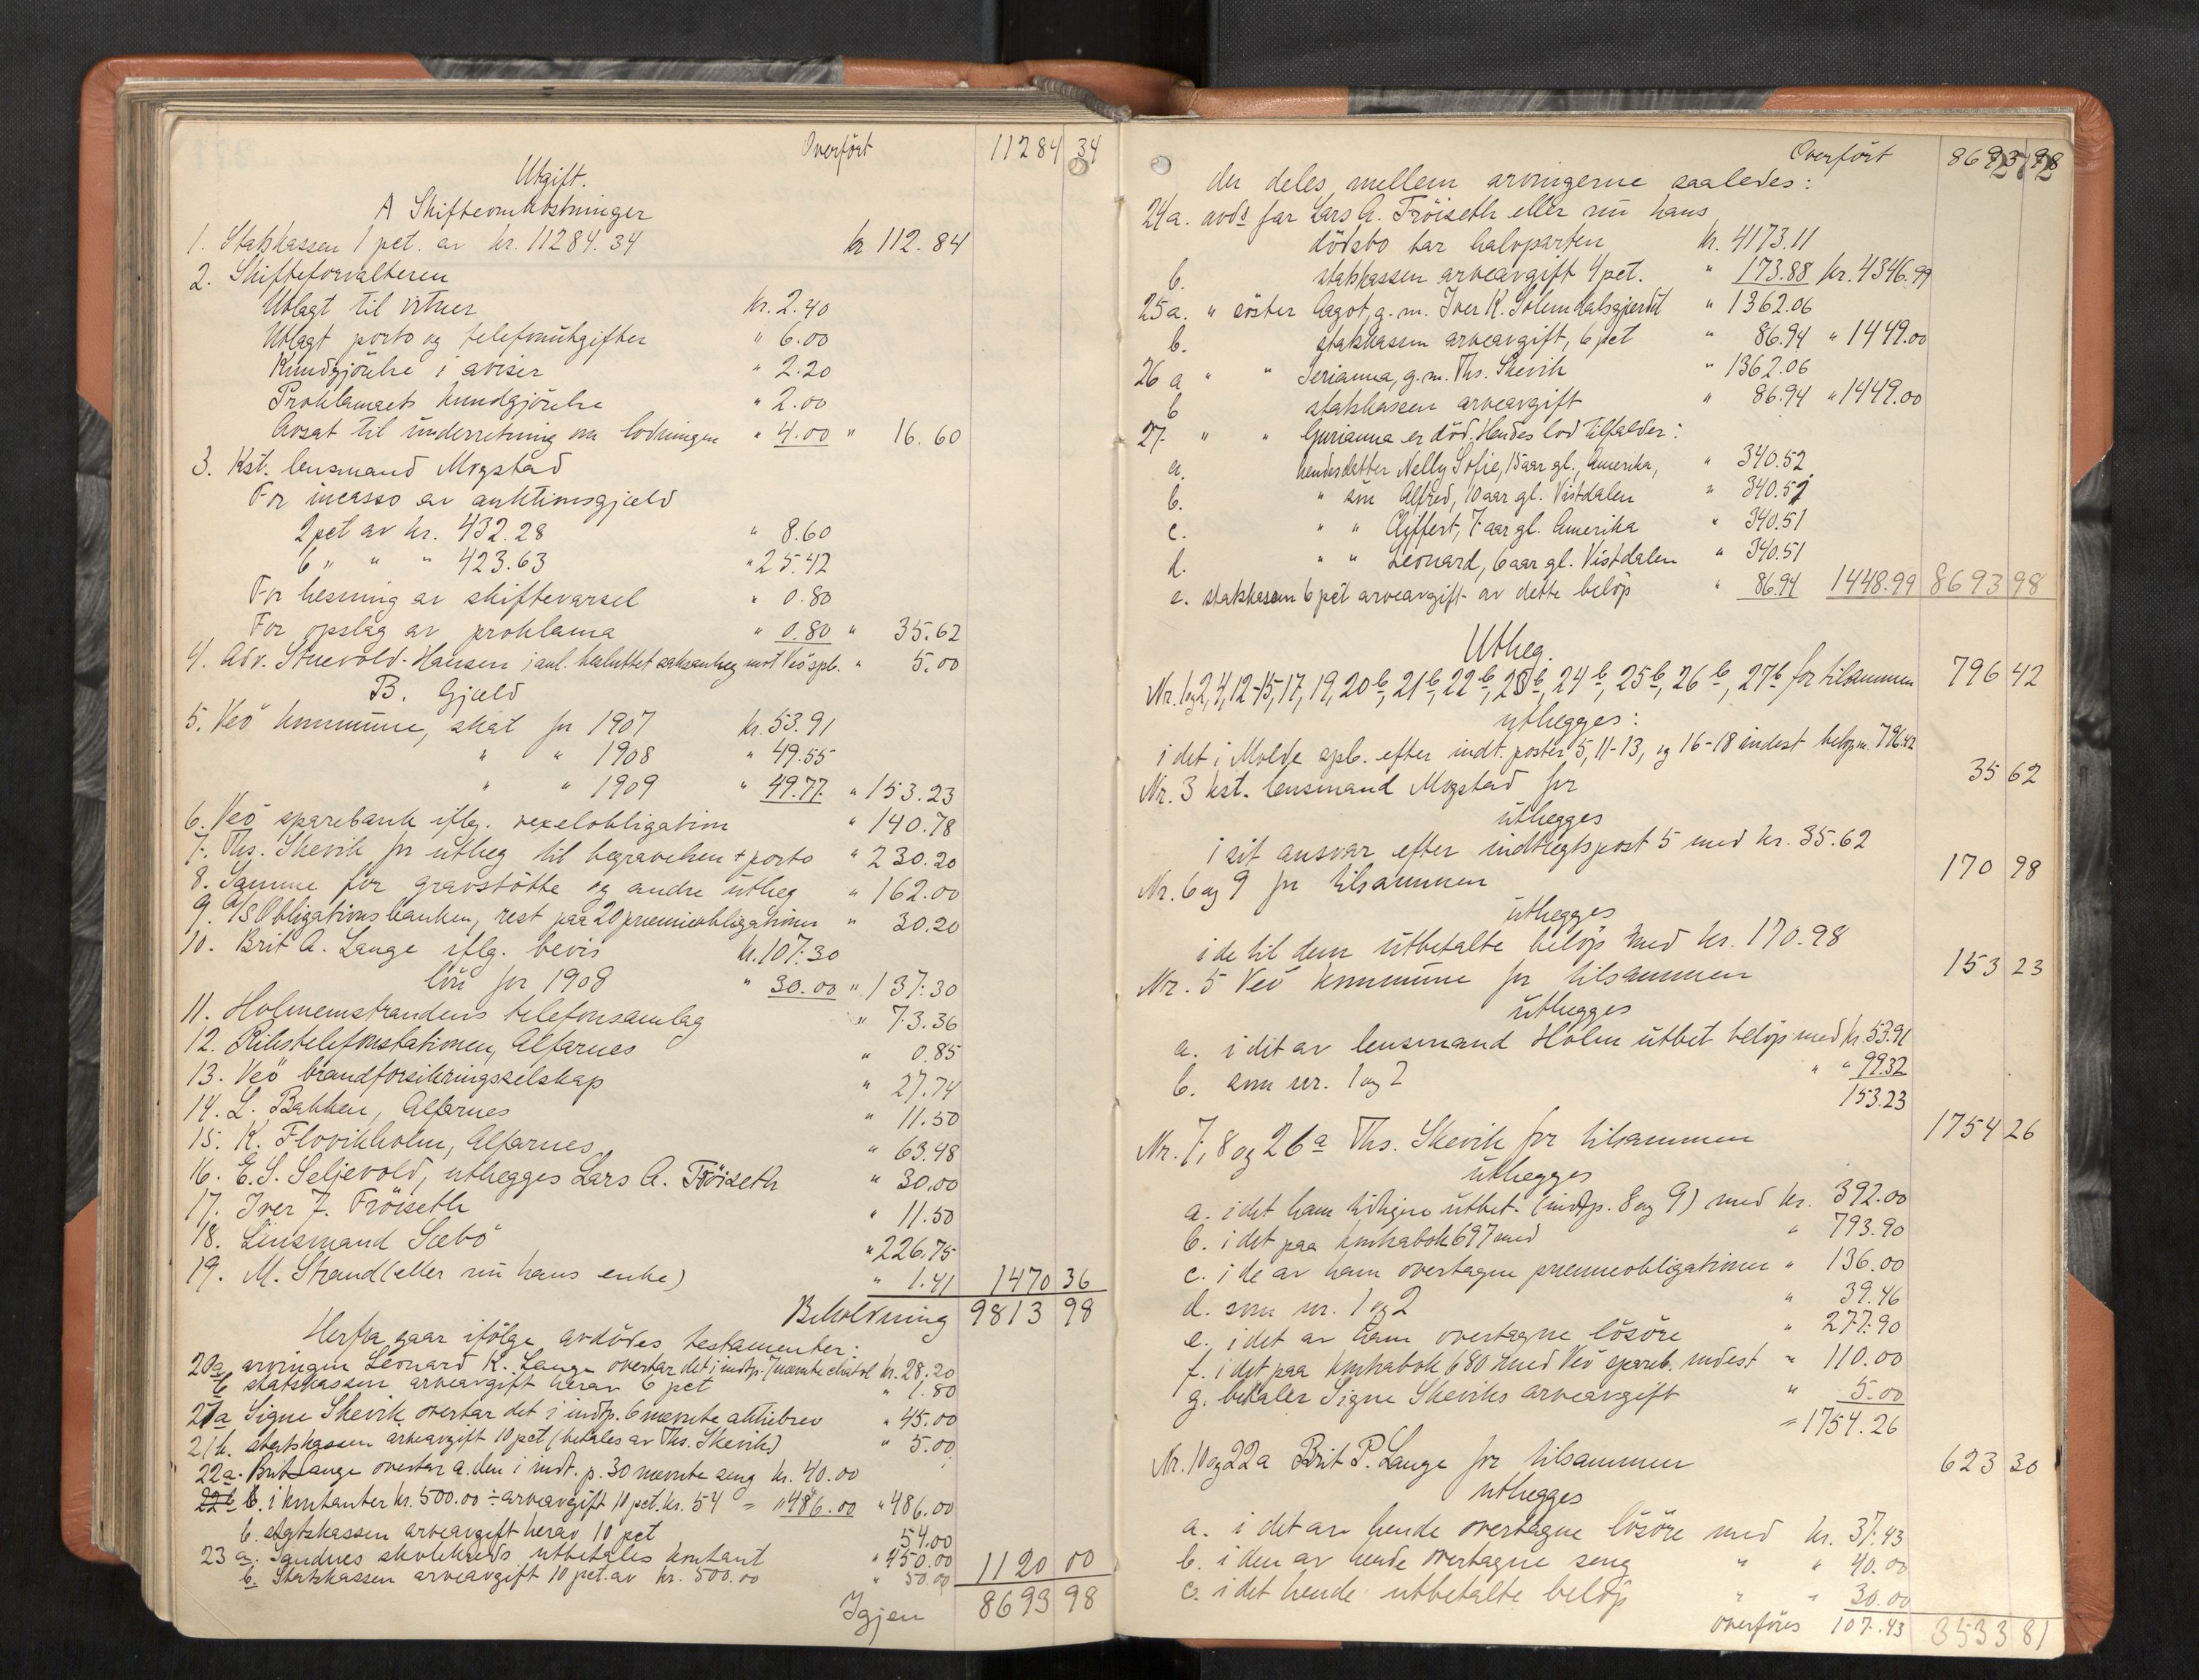 Overført 11284 34
Utgift.
A Skifteomkostninger
1. Statskassen 1 pct. av kr. 11284.34 kr 112.84
2. Skifteforvalteren
Utlagt til vitner kr. 2.40
Utlagt porto og telefonutgifter " 6.00
Kundgjörelse i aviser " 2.20
Proklamaets kundgjörelse " 2.00
Avsat til underretning om lodningen " 4.00 " 16.60
3. Kst. lensmand Mogstad
For incasso av auktionsgjæld
2 pct av kr. 432.28 " 8.60
6 " " " 423.63 " 25.42
For læsning av skiftevarsel " 0.80
For opslag av proklama " 0.80 " 35.62
4. Adv. Struevold-Hansen i anl. besluttet saksanlæg mot Veö spb. " 5.00
B. Gjæld
5. Veö kommune, skat for 1907 kr. 53.91
" " 1908 " 49.55
" " 1909 " 49.77 " 153.23
6. Veö sparebank iflg. vexelobligation " 140.78
7. Ths. Skevik for utlæg til begravelsen + porto " 230.20
8. Samme for gravstötte og andre utlæg " 162.00
9. A/S Obligationsbanken, rest paa 20 præmieobligationer " 30.20
10. Brit A. Lange iflg. bevis kr. 107.30
lön for 1908 " 30.00 " 137.30
11. Holmemstrandens telefonsamlag " 73.36
12. Rikstelefonstationen, Alfarnes " 0.85
13. Veö brandforsikringsselskap " 27.74
14. L. Bakken, Alfarnes " 11.50
15. K. Flovikholm, Alfarnes " 63.48
16. E. S. Seljevold, utlægges Lars A. Fröiseth " 30.00
17. Iver J. Fröiseth " 11.50
18. Lensmand Sæbö " 226.75
19. M. Strand (eller nu hans enke) " 1.41 1470 36
Beholdning 9813 98
Herfra gaar ifölge avdödes testamenter:
20a arvingen Leonard K. Lange overtar det i indtp. 7 nævnte kr. 28.20
b statskassen arveavgift herav 6 pct " 1.80
21a Signe Skevik overtar det i indtp. 6 nævnte aktiebrev " 45.00
21b. statskassen arveavgift 10 pct (betales av Ths. Skevik) " 5.00
22a. Brit Lange overtar a. den i indt. p. 30 nævnte seng kr. 40.00
22b b. i kontanter kr. 500.00 ÷ arveavgift 10 pct. kr. 54 = " 486.00 " 486.00
b. statskassen arveavgift herav 10 pct 54.00
23 a. Sandnes skolekreds utbetales kontant " 450.00
b. Statskassen arveavgift 10 pct. av kr. 500.00 " 50.00 1120 00
Igjen 8693 98
Overført 8693 98
der deles mellem arvingerne saaledes:
24a. avds far Lars A. Fröiseth eller nu hans
dödsbo tar halvparten kr. 4173.11
b. statskassen arveavgift 4 pct. " 173.88 kr. 4346.99
25a. " söster Aagot, g. m. Iver K. Sölemdalsgjerdet " 1362.06
b. statskassen arveavgift, 6 pct " 86.94 " 1449.00
26 a " " Serianna, g. m. Ths. Skevik " 1362.06
b statskassen arveavgift " 86.94 " 1449.00
27. " " Gurianna er död. Hendes lod tilfalder:
a. hendes datter Nelly Sofie, 15 aar gl., Amerika, " 340.52
b. " sön Alfred, 10 aar gl. Vistdalen " 340.51
c. " " Cliffert, 7 aar gl. Amerika " 340.51
d. " " Leonard, 6 aar gl. Vistdalen " 340.51
e. statskassen 6 pct arveavgift av dette belöp " 86.94 1448.99 8693 98
Utlæg.
Nr. 1 og 2, 4, 12-15, 17, 19, 20 b, 21 b, 22 b, 23 b, 24 b, 25 b, 26 b, 27 b for tilsammen 796 42
utlægges:
i det i Molde spb. efter indt. poster 5, 11-13, og 16-18 indest belöp m. 796.42
Nr. 3 kst. lensmand Mogstad for 35 62
utlægges
i sit ansvar efter indtægtspost 5 med kr. 35.62
Nr. 6 og 9 for tilsammen 170 98
utlægges
i de til dem utbetalte belöp med kr. 170.98
Nr. 5 Veö kommune for tilsammen 153 23
utlægges
a. i dit av lensmand Holm utbet belöp med kr. 53.91
b. som nr. 1 og 2 " " 99.32
153.23
Nr. 7, 8 og 26 a Ths. Skevik for tilsammen 1754 26
utlægges
a. i det ham tidligere utbet. (indtp. 8 og 9) med kr. 392.00
b. i det paa kontrabok 697 med " 793.90
c. i de av ham overtagne præmieobligationer " 136.00
d. som nr. 1 og 2 " 39.46
e. i det av ham overtagne lösöre " 277.90
f. i det paa kontrabok 680 med Veö spareb. indest " 110.00
g. betaler Signe Skeviks arveavgift " 5.00
= 1754.26
Nr. 10 og 22a Brit P. Lange for tilsammen 623 30
utlægges
a. i det av hende overtagne lösöre med kr. 37.43
b. i den av hende overtagne seng " " 40.00
c. i det hende utbetalte belöp " " 30.00
overføres 107.43 3533 81